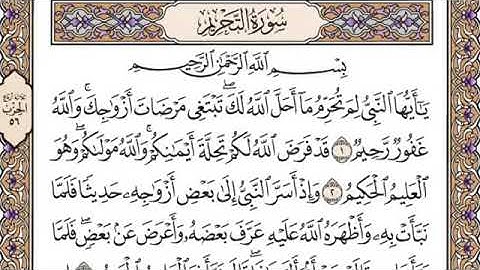 سُورَةُ التَّحْرِيمِ
بِسْمِ اللَّهِ الرَّحْمَٰنِ الرَّحِيمِ
يَٰٓأَيُّهَا ٱلنَّبِىُّ لِمَ تُحَرِّمُ مَآ أَحَلَّ ٱللَّهُ لَكَۖ تَبْتَغِى مَرْضَاتَ أَزْوَٰجِكَۚ وَٱللَّهُ
غَفُورٌ رَّحِيمٌ ١ قَدْ فَرَضَ ٱللَّهُ لَكُمْ تَحِلَّةَ أَيْمَٰنِكُمْۚ وَٱللَّهُ مَوْلَىٰكُمْۖ وَهُوَ
ٱلْعَلِيمُ ٱلْحَكِيمُ ٢ وَإِذْ أَسَرَّ ٱلنَّبِىُّ إِلَىٰ بَعْضِ أَزْوَٰجِهِۦ حَدِيثًا فَلَمَّا
نَبَّأَتْ بِهِۦ وَأَظْهَرَهُ ٱللَّهُ عَلَيْهِ عَرَّفَ بَعْضَهُۥ وَأَعْرَضَ عَنۢ بَعْضٍۖ فَلَمَّا
الحزب
٥٦